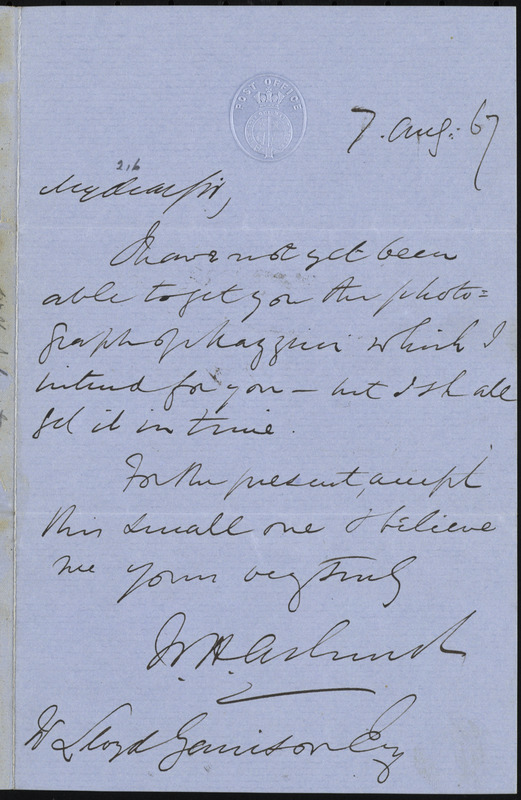 POST OFFICE
7. Aug: 67
216
My dear Sir,
I have not yet been
able to get you the photo=
graph of Mazzini which I
intend for you — but I shall
get it in time.
For the present, accept
this small one & believe
me yours very truly
W. H. Ashurst
W Lloyd Garrison Esq